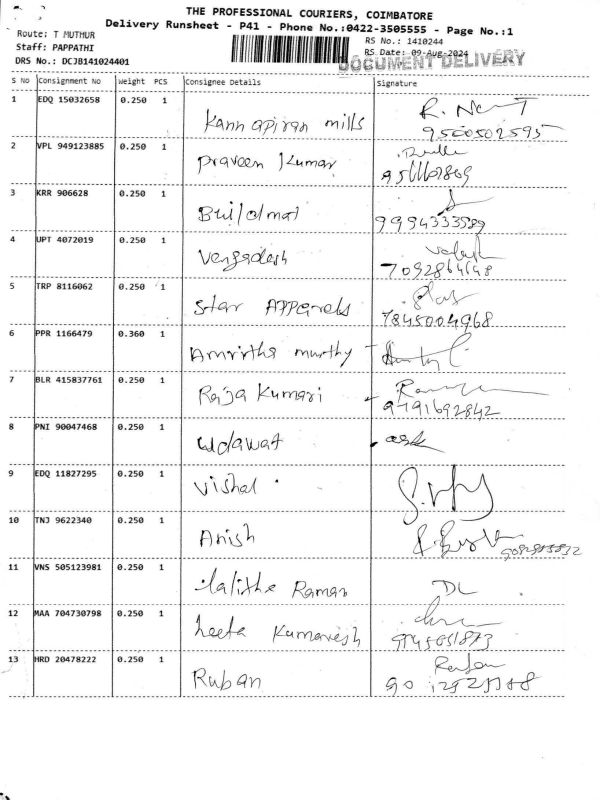 THE PROFESSIONAL COURIERS, COIMBATORE
Delivery Runsheet - P41 - Phone No.:0422-3505555 - Page No.:1
Route: T MUTHUR
RS No.: 1410244
Staff: PAPPATHI
RS Date: 09-Aug-2024
DOCUMENT DELIVERY
DRS No.: DCJB141024401
S No Consignment No Weight PCS Consignee Details Signature
1 EDQ 15032658 0.250 1 Kannapiran mills R.
9500502595
2 VPL 949123885 0.250 1 Praveen Kumar
3 KRR 906628 0.250 1 Buildmat
9994333589
4 UPT 4072019 0.250 1 Vengadesh
7092864648
5 TRP 8116062 0.250 1 Star Apparels
7845004968
6 PPR 1166479 0.360 1 Amrithe murthy
7 BLR 415837761 0.250 1 Raja Kumari
9791692842
8 PNI 90047468 0.250 1 Udawat
9 EDQ 11827295 0.250 1 Vishal
10 TNJ 9622340 0.250 1 Anish
11 VNS 505123981 0.250 1 Lalithe Raman DL
12 MAA 704730798 0.250 1 Leeta Kumaresh
9745051873
13 HRD 20478222 0.250 1 Ruban Ruban